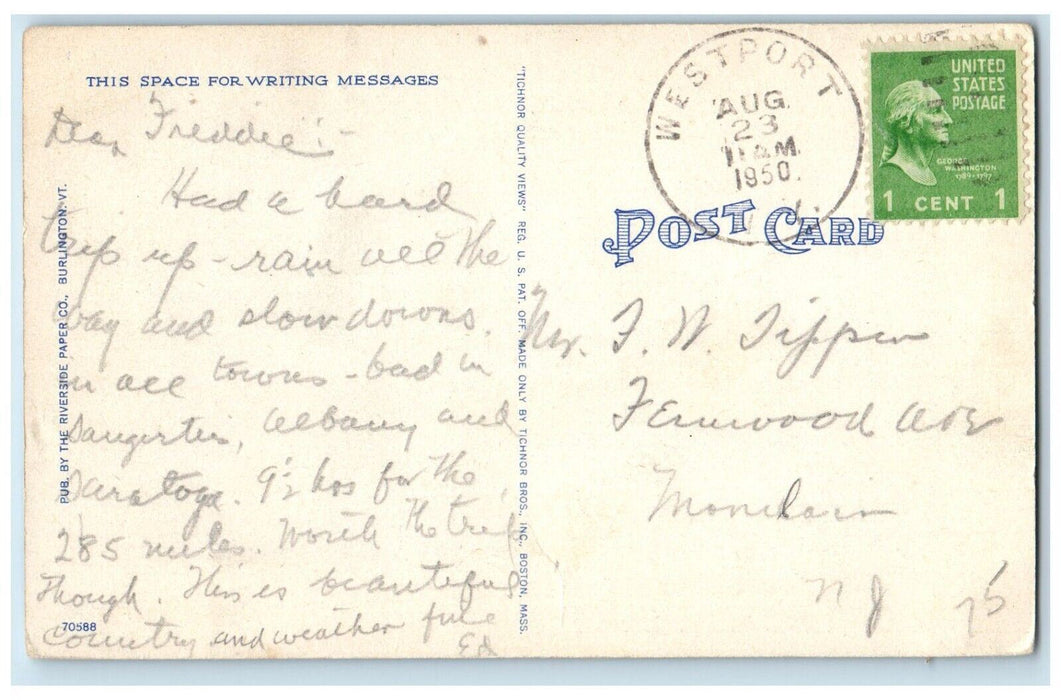 THIS SPACE FOR WRITING MESSAGES
Dear Freddie:-
Had a hard
trip up - rain all the
way and slow downs.
in all towns - bad in
Saugerties, Albany and
Saratoga. 9½ hrs for the
285 miles. Worth the trip
though. This is beautiful
country and weather fine
Ed
70588
PUB. BY THE RIVERSIDE PAPER CO., BURLINGTON, VT.
"TICHNOR QUALITY VIEWS" REG. U. S. PAT. OFF. MADE ONLY BY TICHNOR BROS., INC., BOSTON, MASS.
WESTPORT
AUG
23
11 AM
1950
UNITED
STATES
POSTAGE
GEORGE
WASHINGTON
1789-1797
1 CENT 1
POST CARD
Mr. F. W. Tippin
Fernwood Ave
Montclair
N J